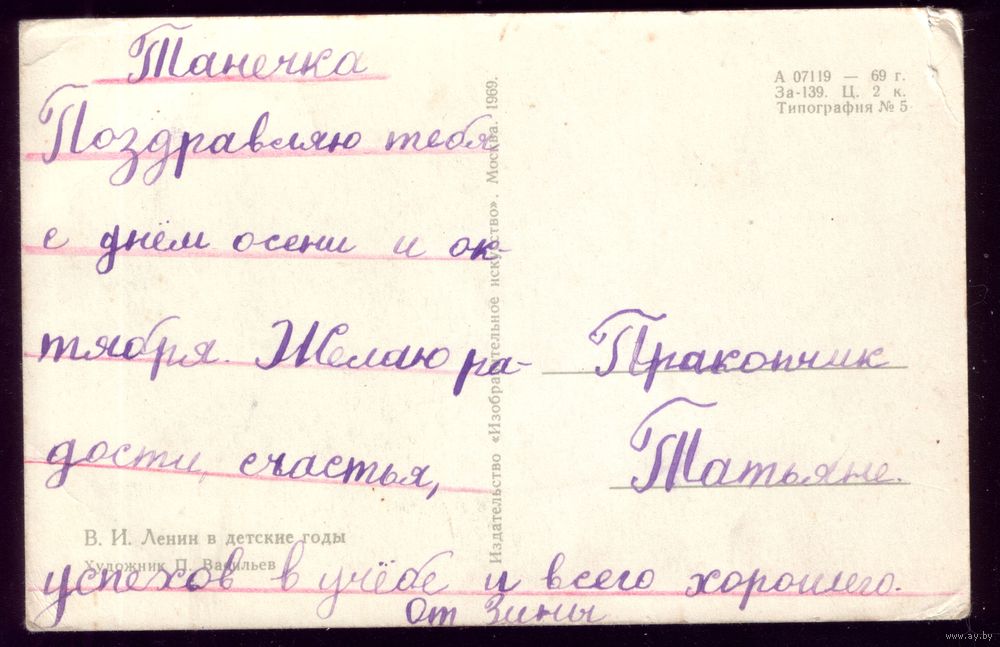 Танечка
Поздравляю тебя
с днём осени и ок-
тября. Желаю ра-
дости, счастья,
успехов в учёбе и всего хорошего.
От Зины
Пракопчик
Татьяне.
А 07119 — 69 г.
За-139. Ц. 2 к.
Типография № 5
Издательство «Изобразительное искусство». Москва. 1969.
В. И. Ленин в детские годы
Художник П. Васильев
www.ay.by